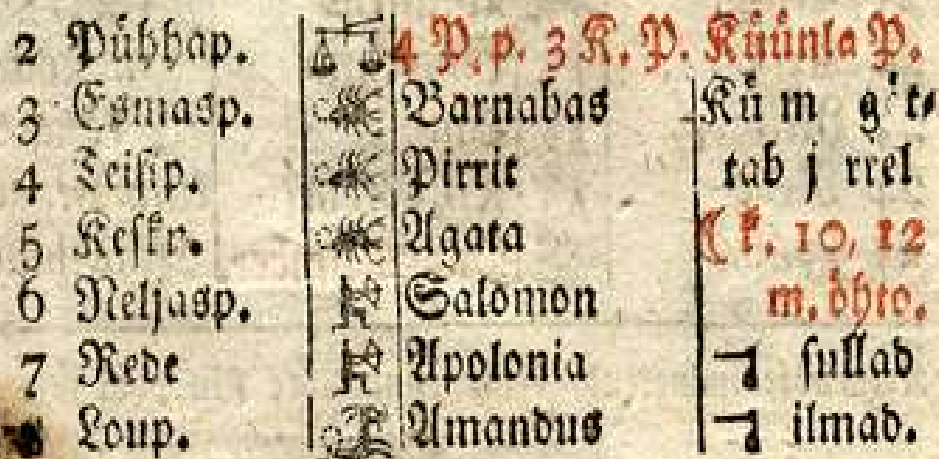 2 Pühhap. 4 P. p. 3 K. P. Küünla P.
3 Esmasp. Barnabas Kü m
4 Teisip. Pirrit tab j rrel
5 Keskr. Agata k. 10, 12
6 Neljasp. Salomon m. öhto.
7 Rede Apolonia sullad
Loup. Amandus ilmad.